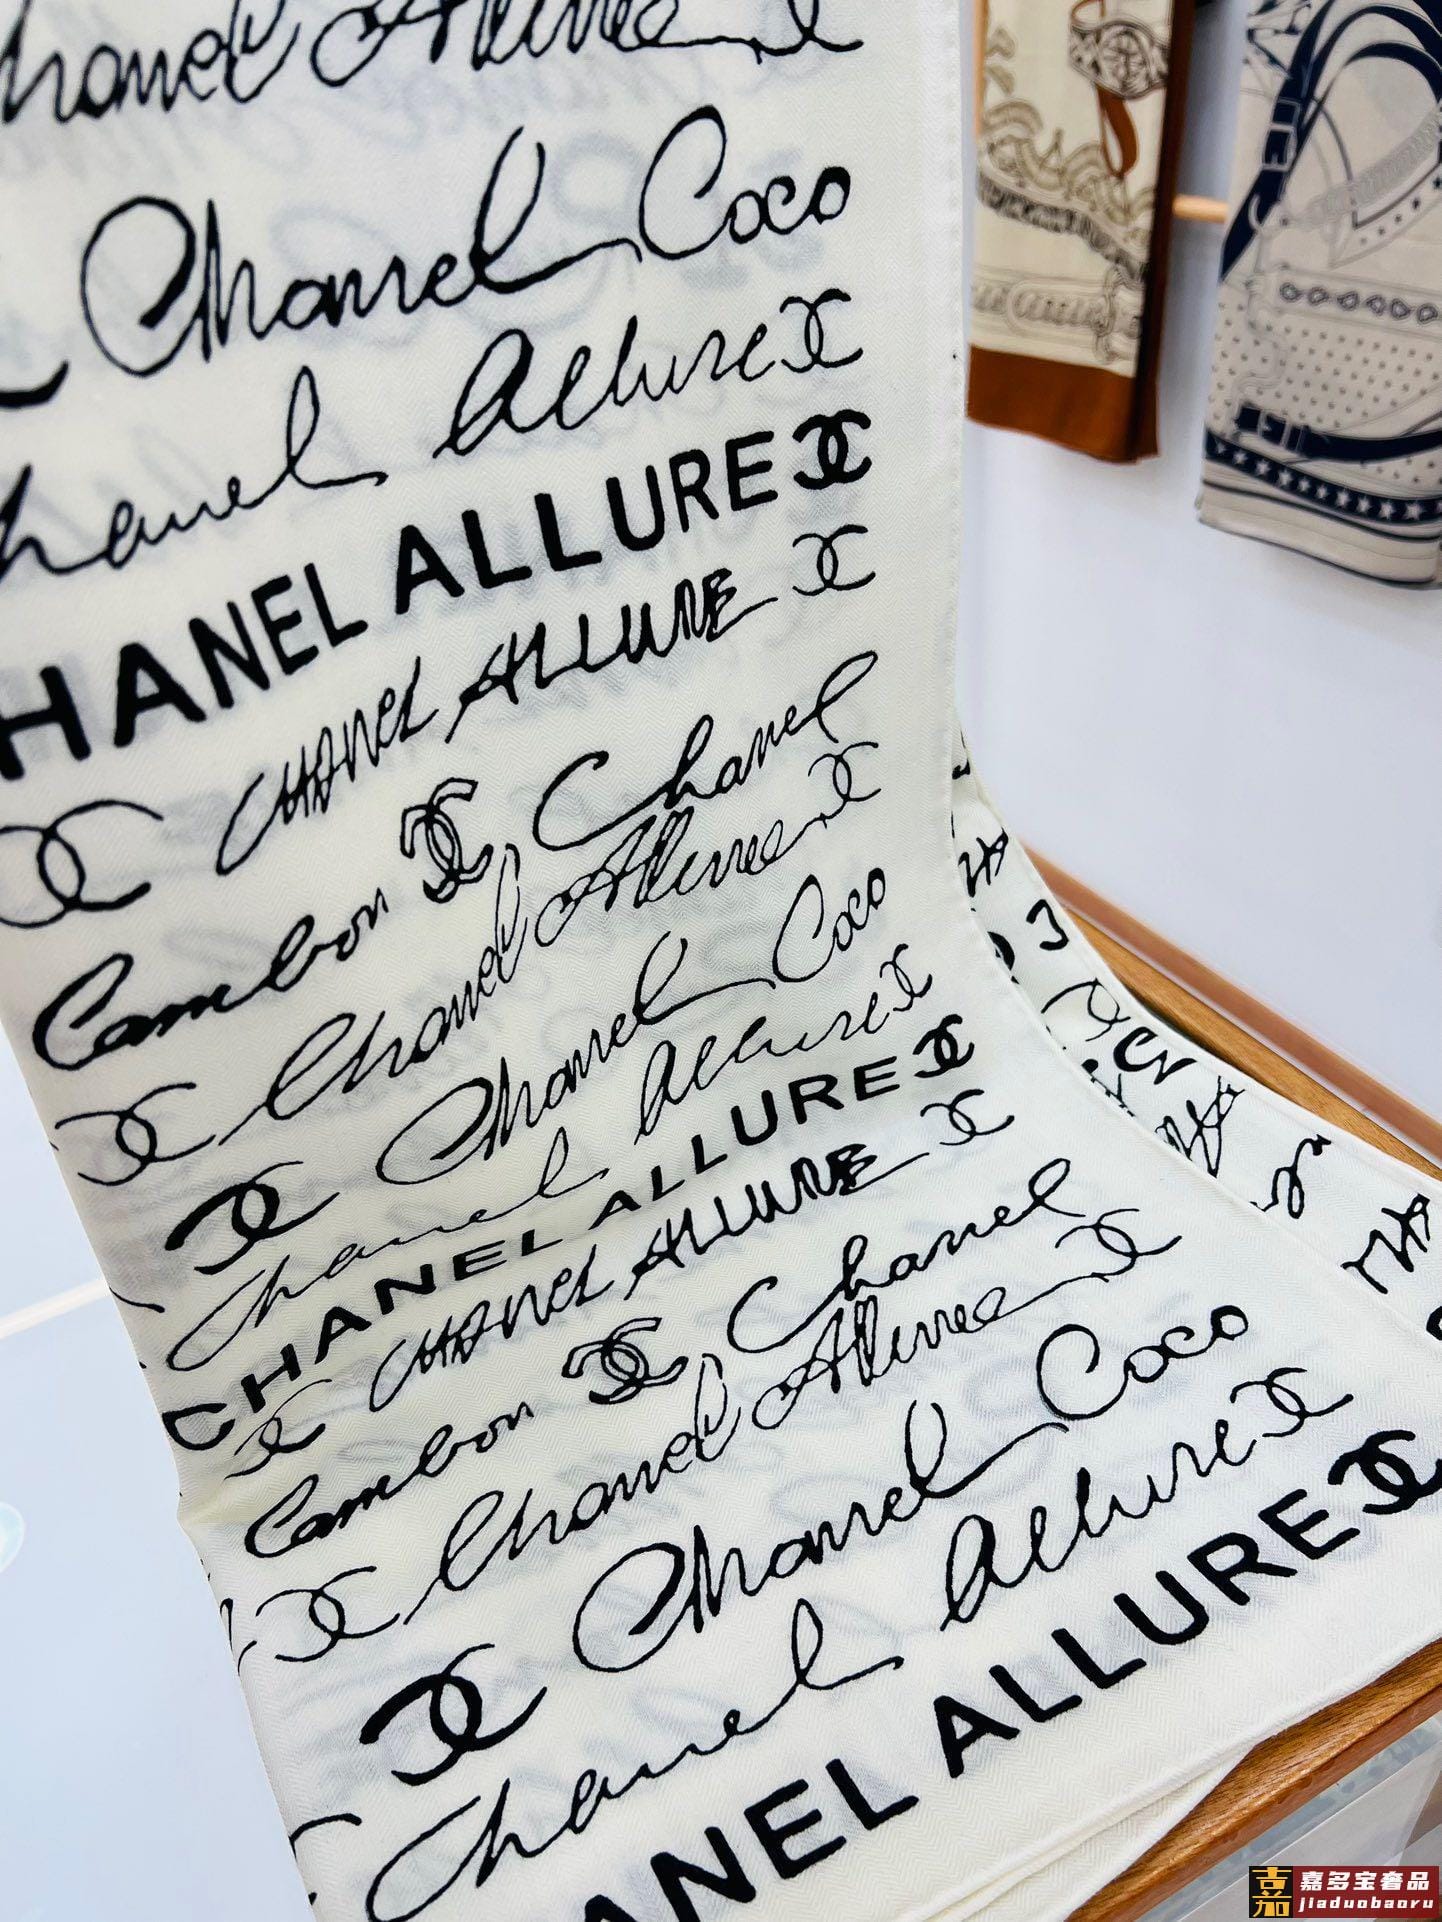 Chanel Allure
Chanel Coco
Chanel Allure
HANEL ALLURE
CHANEL ALLURE
Cambon Chanel
Chanel Allure
Chanel Coco
Chanel Allure
CHANEL ALLURE
CHANEL ALLURE
Cambon Chanel
Chanel Allure
Chanel Coco
Chanel Allure
ANEL ALLURE
嘉 嘉多宝奢品
jiaduobaoru